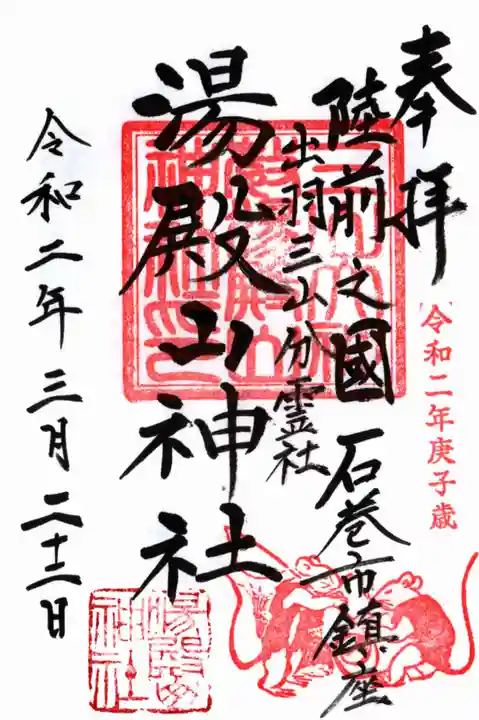 奉拝
陸前之國 石巻市鎮座
出羽三山分霊社
湯殿山神社
令和二年三月二十二日
令和二年庚子歳
湯殿山
神社